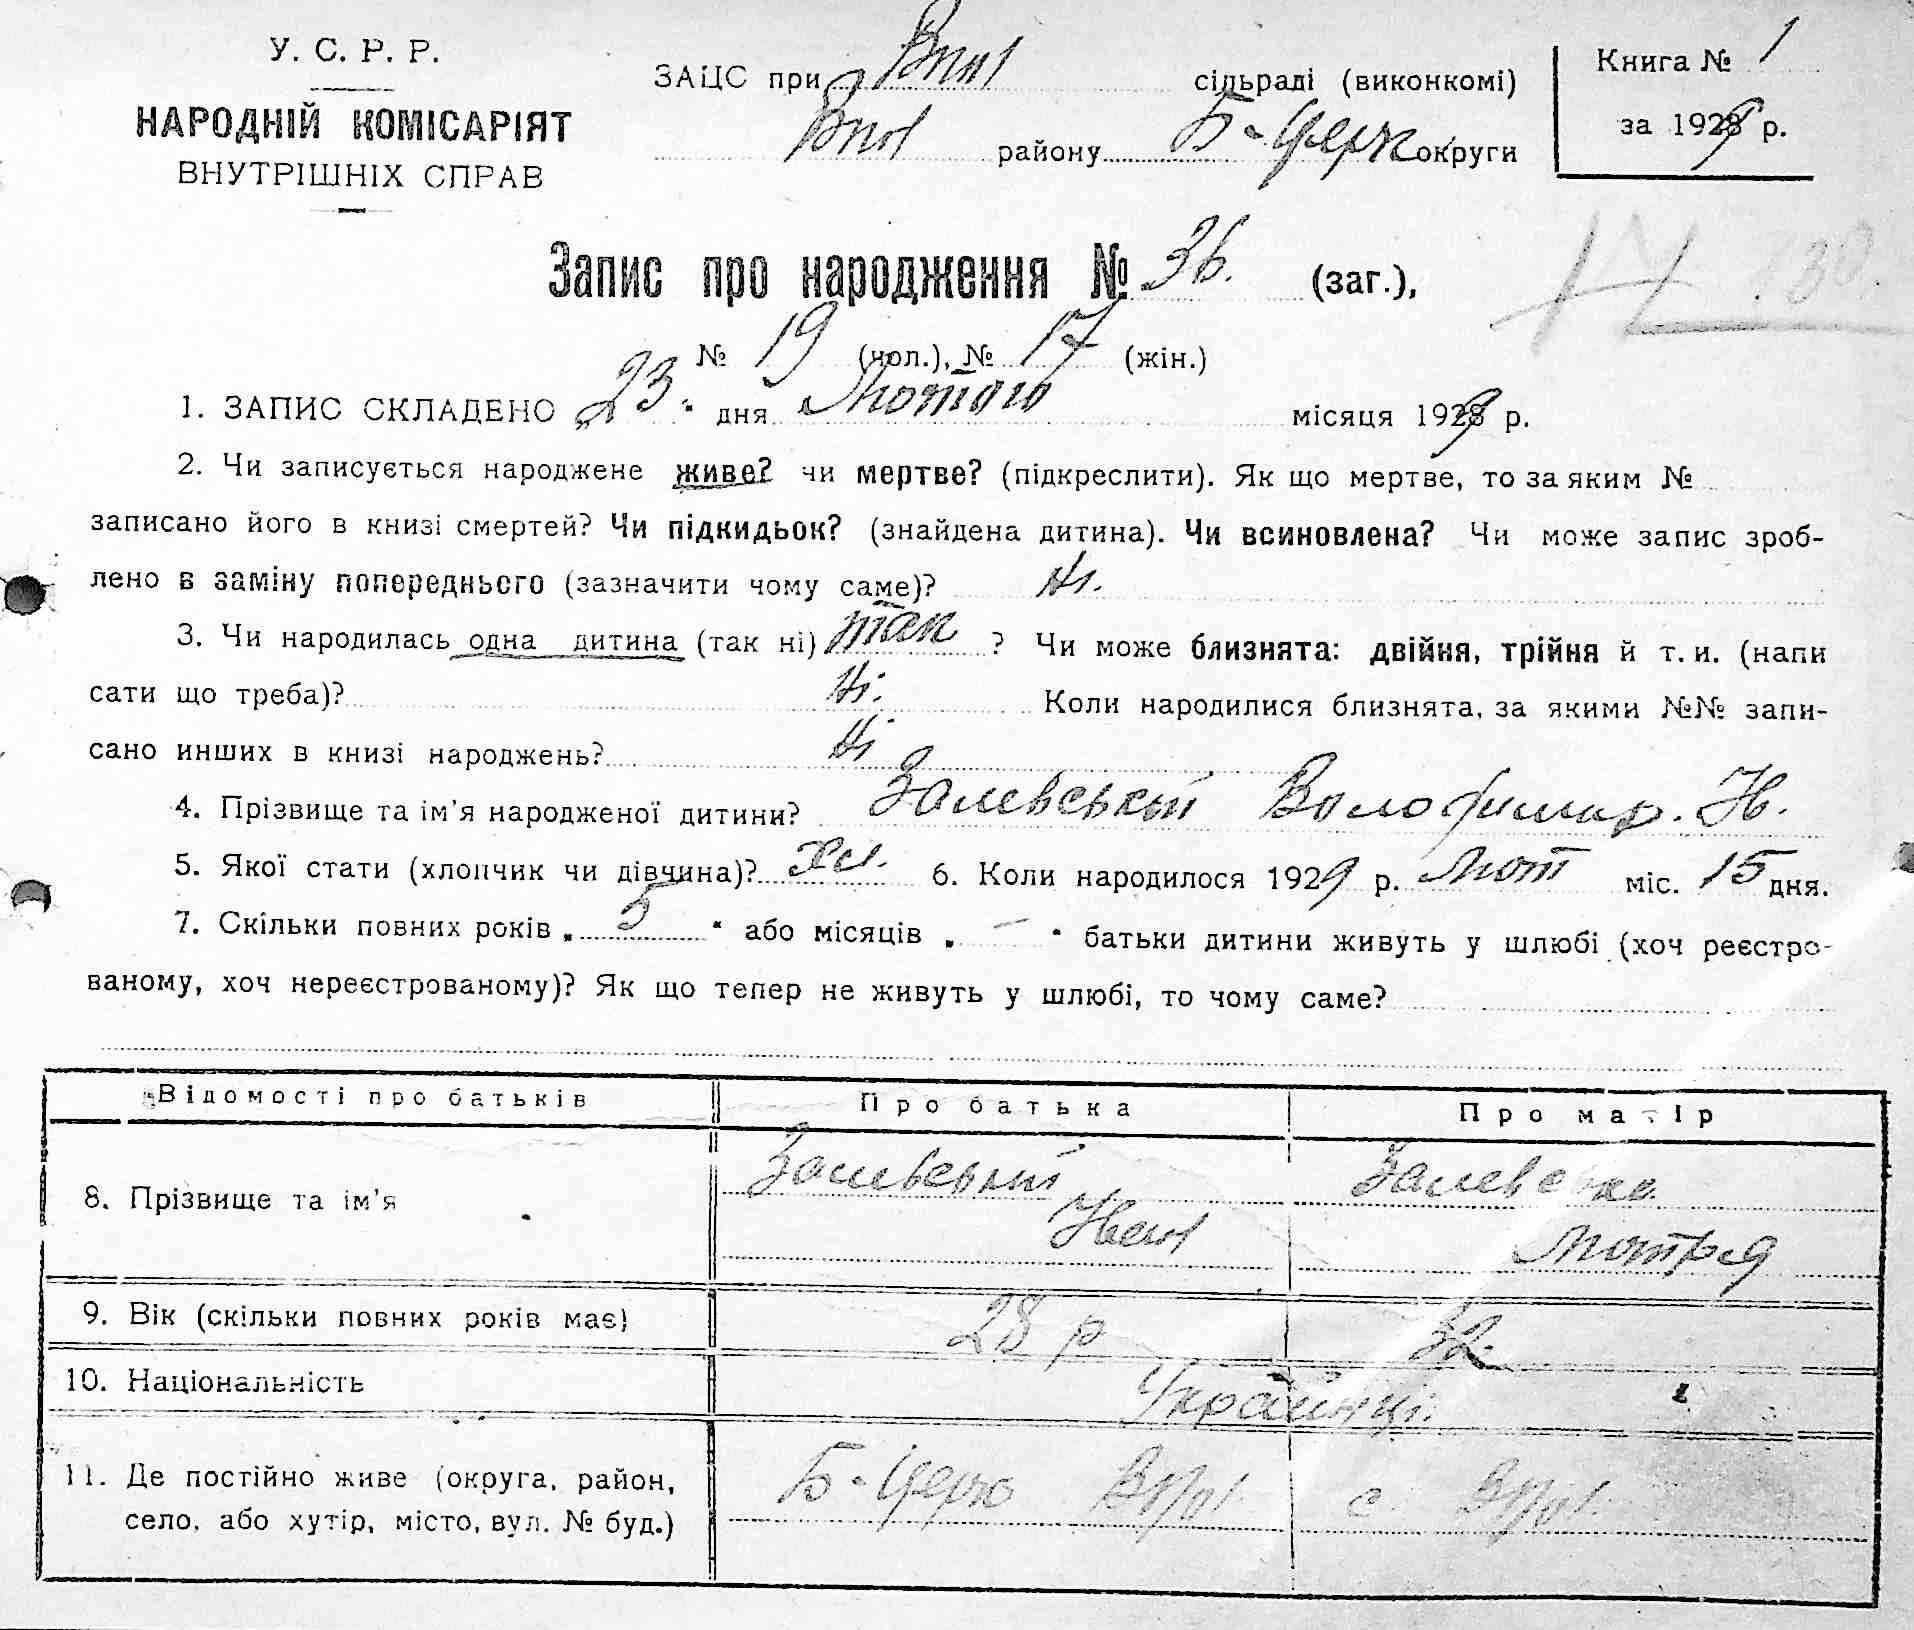 У. С. Р. Р.
НАРОДНІЙ КОМІСАРІЯТ
ВНУТРІШНІХ СПРАВ
ЗАЦС при сільраді (виконкомі)
району Б-Церк округи
Книга № 1
за 1929 р.
Запис про народження № 36. (заг.),
17
№ 19 (чол.), № 17 (жін.)
1. ЗАПИС СКЛАДЕНО „23“ дня Лютого місяця 1929 р.
2. Чи записується народжене живе? чи мертве? (підкреслити). Як що мертве, то за яким №
записано його в книзі смертей? Чи підкидьок? (знайдена дитина). Чи всиновлена? Чи може запис зроб-
лено в заміну попереднього (зазначити чому саме)? Ні.
3. Чи народилась одна дитина (так ні) так ? Чи може близнята: двійня, трійня й т. и. (напи
сати що треба)? Ні. Коли народилися близнята, за якими №№ запи-
сано инших в книзі народжень? Ні
4. Прізвище та ім'я народженої дитини? Залевський Володимир. Ів.
5. Якої стати (хлопчик чи дівчина)? хл. 6. Коли народилося 1929 р. Лют міс. 15 дня.
7. Скільки повних років „ 5 “ або місяців „ – “ батьки дитини живуть у шлюбі (хоч реєстро-
ваному, хоч нереєстрованому)? Як що тепер не живуть у шлюбі, то чому саме?
Відомості про батьків Про батька Про матір
8. Прізвище та ім'я Залевський Залевська
Іван Мотря
9. Вік (скільки повних років має) 28 р 32
10. Національність Українці.
11. Де постійно живе (округа, район, Б-Церк с
село, або хутір, місто, вул. № буд.)